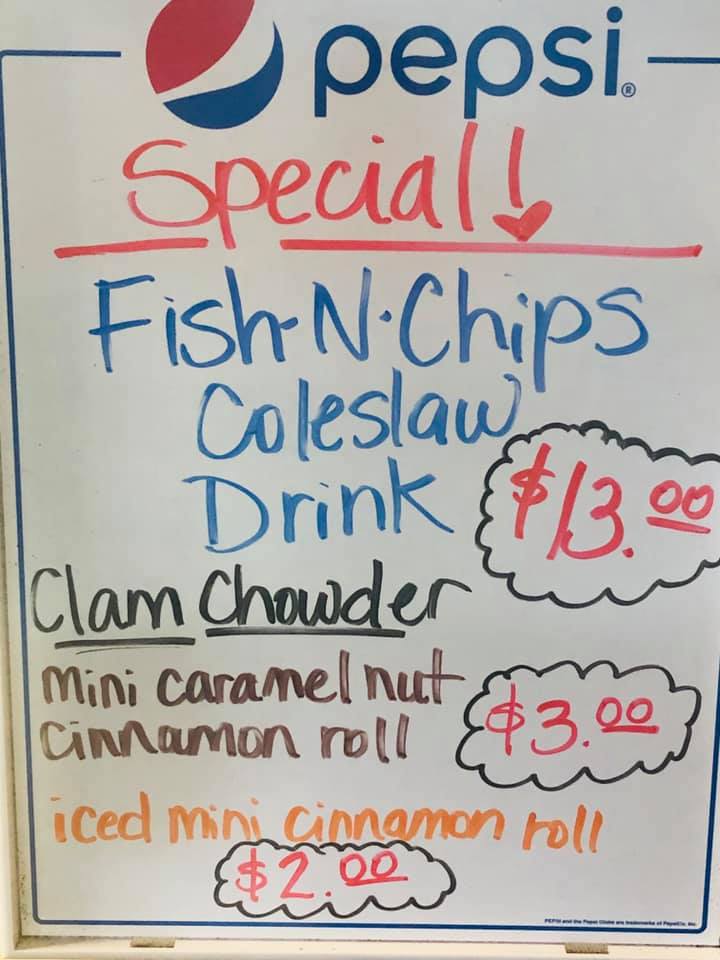 pepsi®
Special!
Fish-N-Chips
Coleslaw
Drink
$13.00
Clam Chowder
mini caramel nut
cinnamon roll
$3.00
iced mini cinnamon roll
$2.00
PEPSI and the Pepsi Globe are trademarks of PepsiCo, Inc.